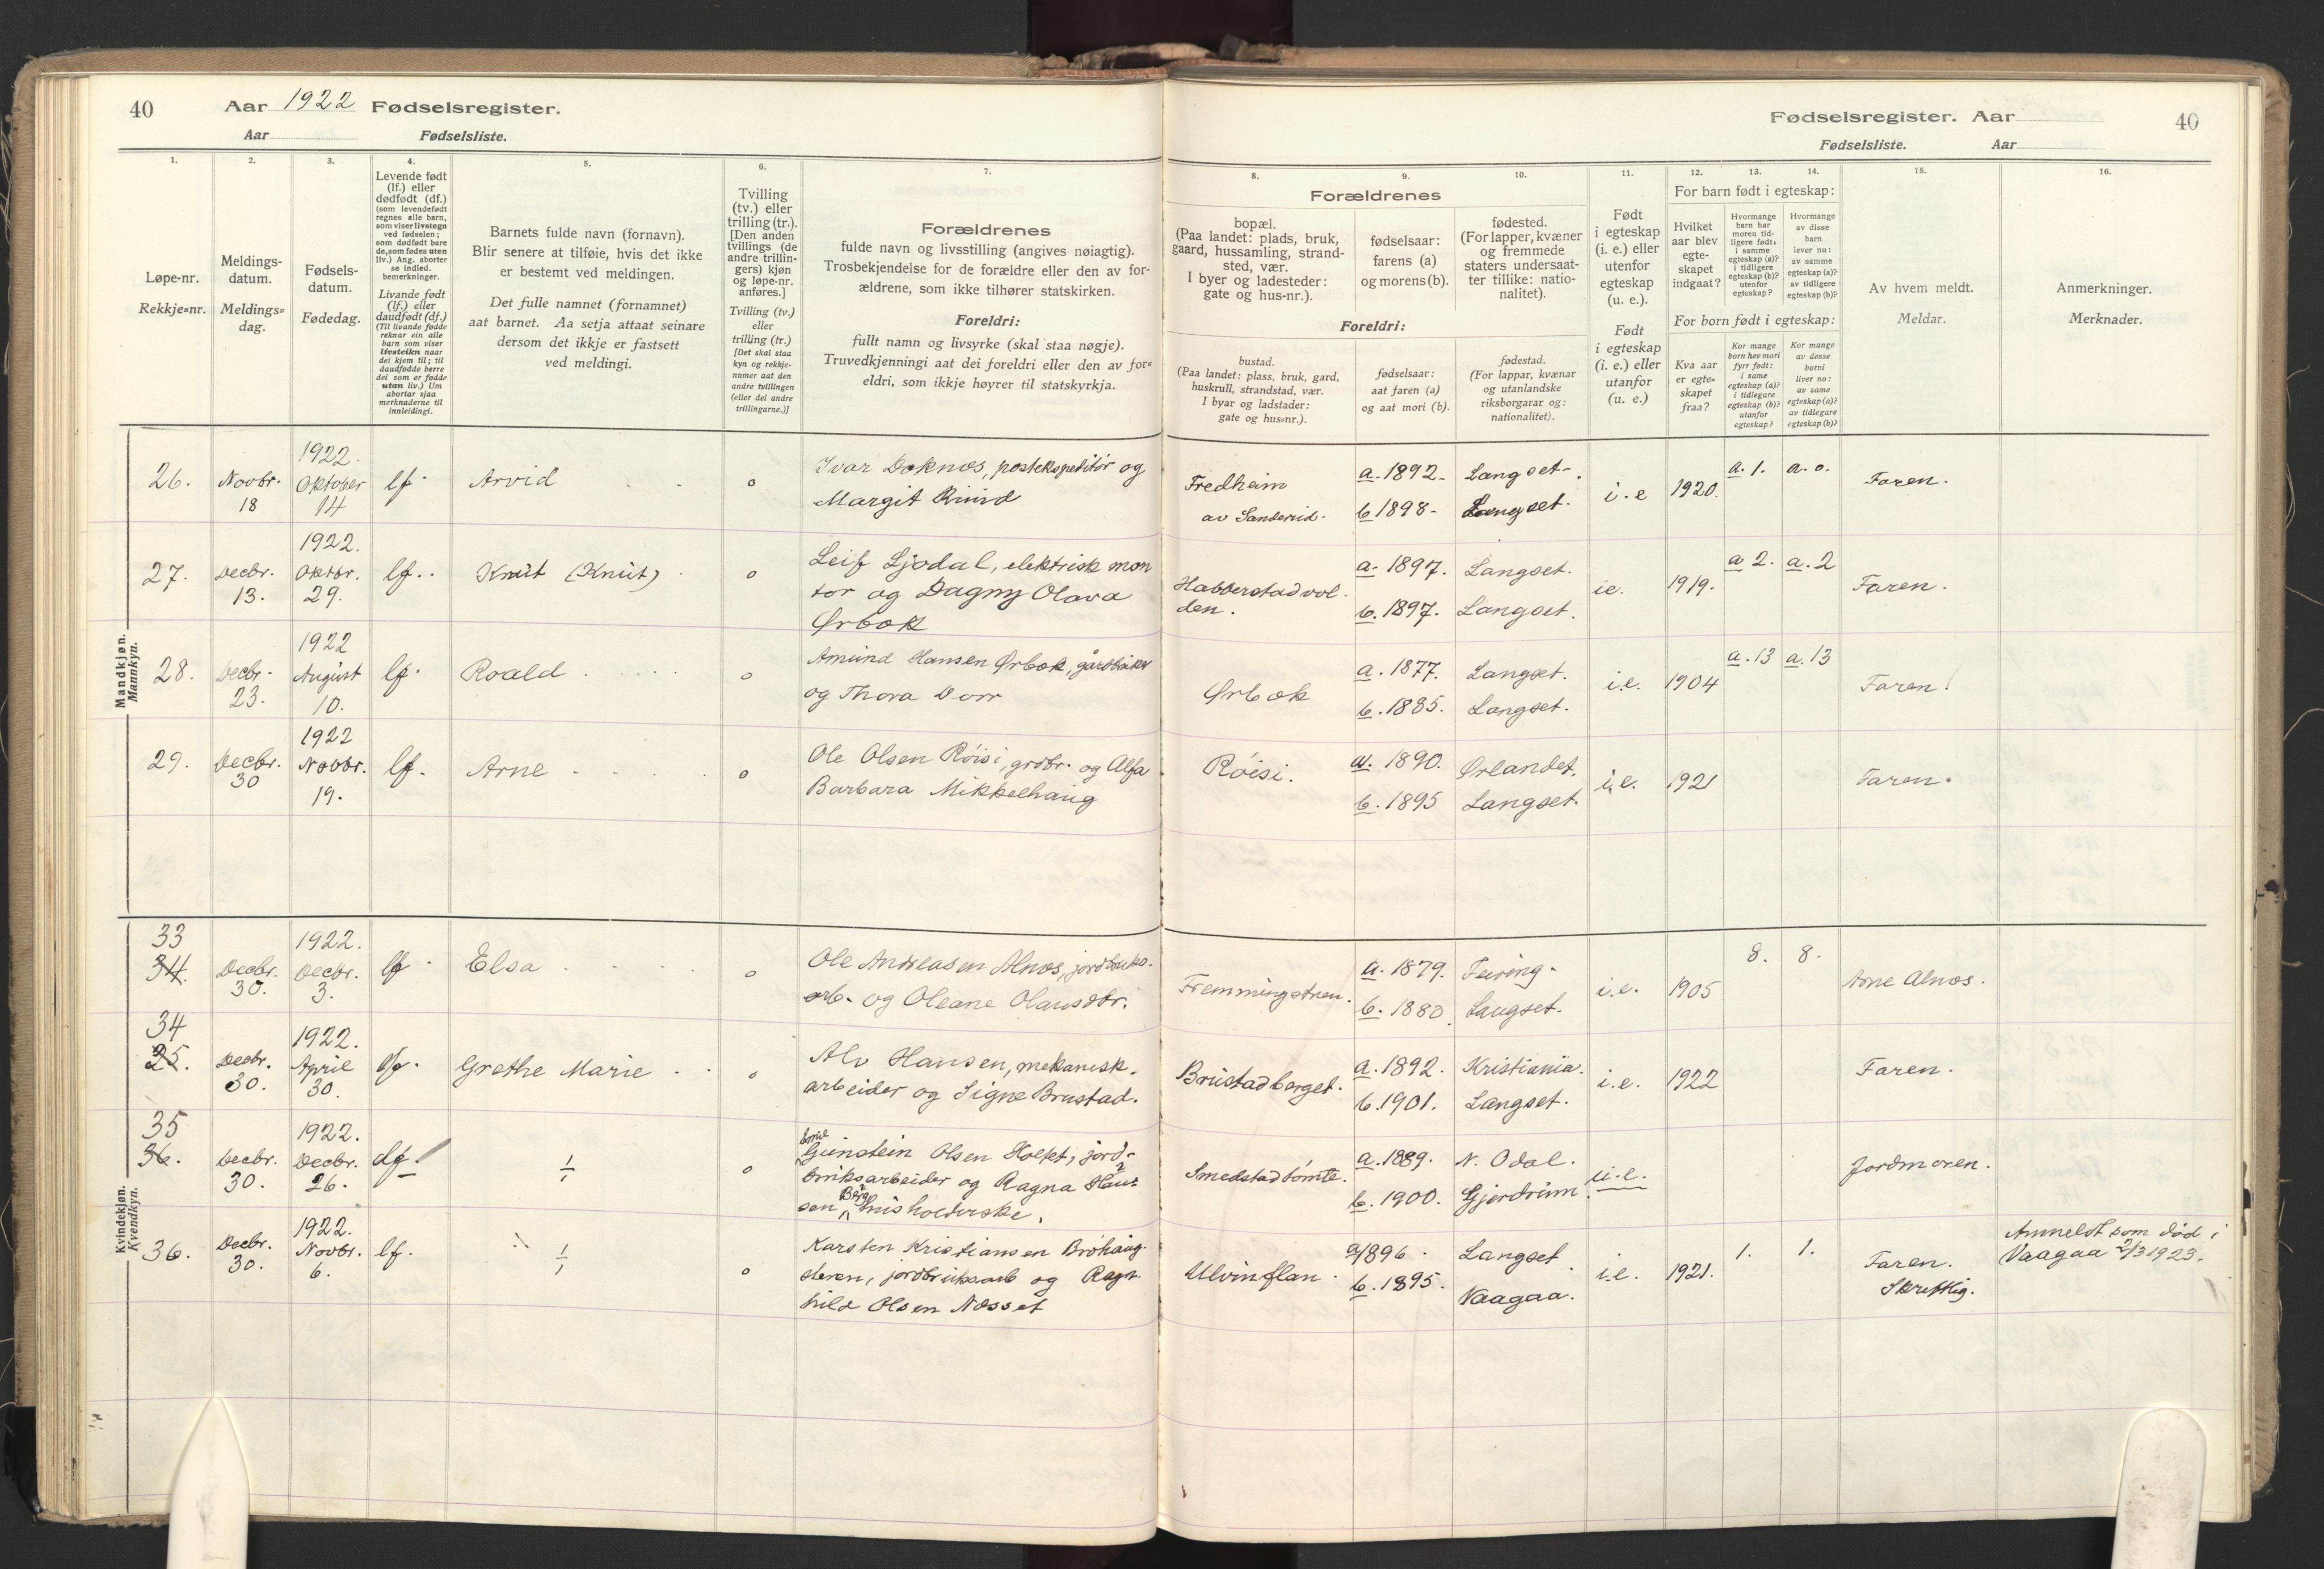 40 Aar 1922 Fødselsregister.
Aar Fødselsliste.
Fødselsregister. Aar 40
Fødselsliste. Aar
1. 2. 3. 4. 5. 6. 7.
Løpe-nr.
Rekkje=nr.
Meldings-
datum.
Meldings=
dag.
Fødsels-
datum.
Fødedag.
Levende født
(lf.) eller
dødfødt (df.)
(som levendefødt
regnes alle barn,
som viser livstegn
ved fødselen;
som dødfødt bare
de, som fødes uten
liv.) Ang. aborter
se indled.
bemerkninger.
Livande født
(lf.) eller
daudfødt (df.)
(Til livande fødde
reknar ein alle
barn som viser
livsteikn naar
dei kjem til; til
daudfødde berre
dei som er fødde
utan liv.) Um
abortar sjaa
merknaderne til
innleidingi.
Barnets fulde navn (fornavn).
Blir senere at tilføie, hvis det ikke
er bestemt ved meldingen.
Det fulle namnet (fornamnet)
aat barnet. Aa setja attaat seinare
dersom det ikkje er fastsett
ved meldingi.
Tvilling
(tv.) eller
trilling (tr.).
[Den anden
tvillings (de
andre trillin-
gers) kjøn
og løpe-nr.
anføres.]
Tvilling (tv.)
eller
trilling (tr.)
[Det skal staa
kyn og rekkje-
numer aat den
andre tvillingen
(eller dei andre
trillingarne.)]
Forældrenes
fulde navn og livsstilling (angives nøiagtig).
Trosbekjendelse for de forældre eller den av for-
ældrene, som ikke tilhører statskirken.
Foreldri:
fullt namn og livsyrke (skal staa nøgje).
Truvedkjenningi aat dei foreldri eller den av for=
eldri, som ikkje høyrer til statskyrkja.
8. 9. 10. 11. 12. 13. 14. 15. 16.
Forældrenes
bopæl.
(Paa landet: plads, bruk,
gaard, hussamling, strand-
sted, vær.
I byer og ladesteder:
gate og hus-nr.).
fødselsaar:
farens (a)
og morens (b).
fødested.
(For lapper, kvæner
og fremmede
staters undersaat-
ter tillike: natio-
nalitet).
Foreldri:
bustad.
(Paa landet: plass, bruk, gard,
huskrull, strandstad, vær.
I byar og ladstader:
gate og hus=nr.).
fødselsaar:
aat faren (a)
og aat mori (b).
fødestad.
(For lappar, kvænar
og utanlandske
riksborgarar og:
nationalitet).
Født
i egteskap
(i. e.) eller
utenfor
egteskap
(u. e.).
Født
i egteskap
(i. e.) eller
utanfor
(u. e.)
For barn født i egteskap:
Hvilket
aar blev
egte-
skapet
indgaat?
Hvormange
barn har
moren tid-
ligere født:
i samme
egteskap (a)?
i tidligere
egteskap (b)?
utenfor
egteskap?
Hvormange
av disse
barn
lever nu:
av samme
egteskap (a)?
av tidligere
egteskap (b)?
For born født i egteskap:
Kva aar
er egte=
skapet
fraa?
Kor mange
born hev mori
fyrr født:
i same
egteskap (a)?
i tidlegare
egteskap (b)?
utanfor
egteskap?
Kor mange
av desse
borni
liver no:
av same
egteskap (a)?
av tidlegare
egteskap (b)?
Av hvem meldt.
Meldar.
Anmerkninger.
Merknader.
Mandkjøn.
Mannkyn.
26. Novbr. 18 1922. Oktober 14 lf. Arvid o
Ivar Doknes, postekspeditør og
Margit Rund
Fredheim
av Sanderud. a. 1892. b 1898. Langset. Langset. i.e 1920. a. 1. a. o. Faren.
27. Decbr. 13. 1922. Oktbr. 29. lf. Knut (Knut) o
Leif Ljødal, elektrisk mon
tør og Dagny Olava
Ørbæk
Habberstadvol
den. a. 1897. b. 1897. Langset. Langset. ie. 1919. a 2. a. 2 Faren.
28. Decbr. 23. 1922 August 10. lf. Roald o
Amund Hansen Ørbæk, gårdbruker
og Thora Dorr
Ørbæk a. 1877. b. 1885. Langset. Langset. i.e. 1904 a. 13 a. 13 Faren!
29. Decbr. 30 1922 Novbr. 19. lf. Arne o
Ole Olsen Røisi, grdbr. og Alfa
Barbara Mikkelhaug
Røisi. a. 1890. b. 1895 Ørlandet. Langset. i.e. 1921 Faren.
Kvindekjøn.
Kvendkyn.
33
34. Decbr. 30. 1922. Decbr. 3. lf Elsa o
Ole Andreasen Alnes, jordbruks.
arb. og Oleane Olausdtr.
Fremmingstuen. a. 1879. b. 1880 Feiring. Langset. i.e. 1905 8. 8. Arne Alnes.
34
35. Decbr. 30. 1922. April 30. lf. Grethe Marie o
Alv Hansen, mekanisk.
arbeider og Signe Brustad.
Brustadberget. a. 1892. b. 1901. Kristiania. Langset. i.e. 1922 Faren.
35
36. Decbr. 30. 1922. Decbr. 26. df. ÷ o
Emil
Gunstein Olsen Holkt, jord-
bruksarbeider og Ragna Han-
sen Berg husholderske.
Smedstadtomte. a. 1889. b. 1900. N. Odal. Gjerdrum. u.e. Jordmoren.
36. Decbr. 30. 1922. Novbr. 6. lf. ÷ o
Karsten Kristiansen Brøhaug-
steren, jordbruksarb og Ragn-
hild Olsen Næsset
Ulvinflan. a 1896. b. 1895. Langset Vaagaa. i.e. 1921. 1. 1. Faren.
Skriftlig.
Anmeldt som død i
Vaagaa 2/3 1923.